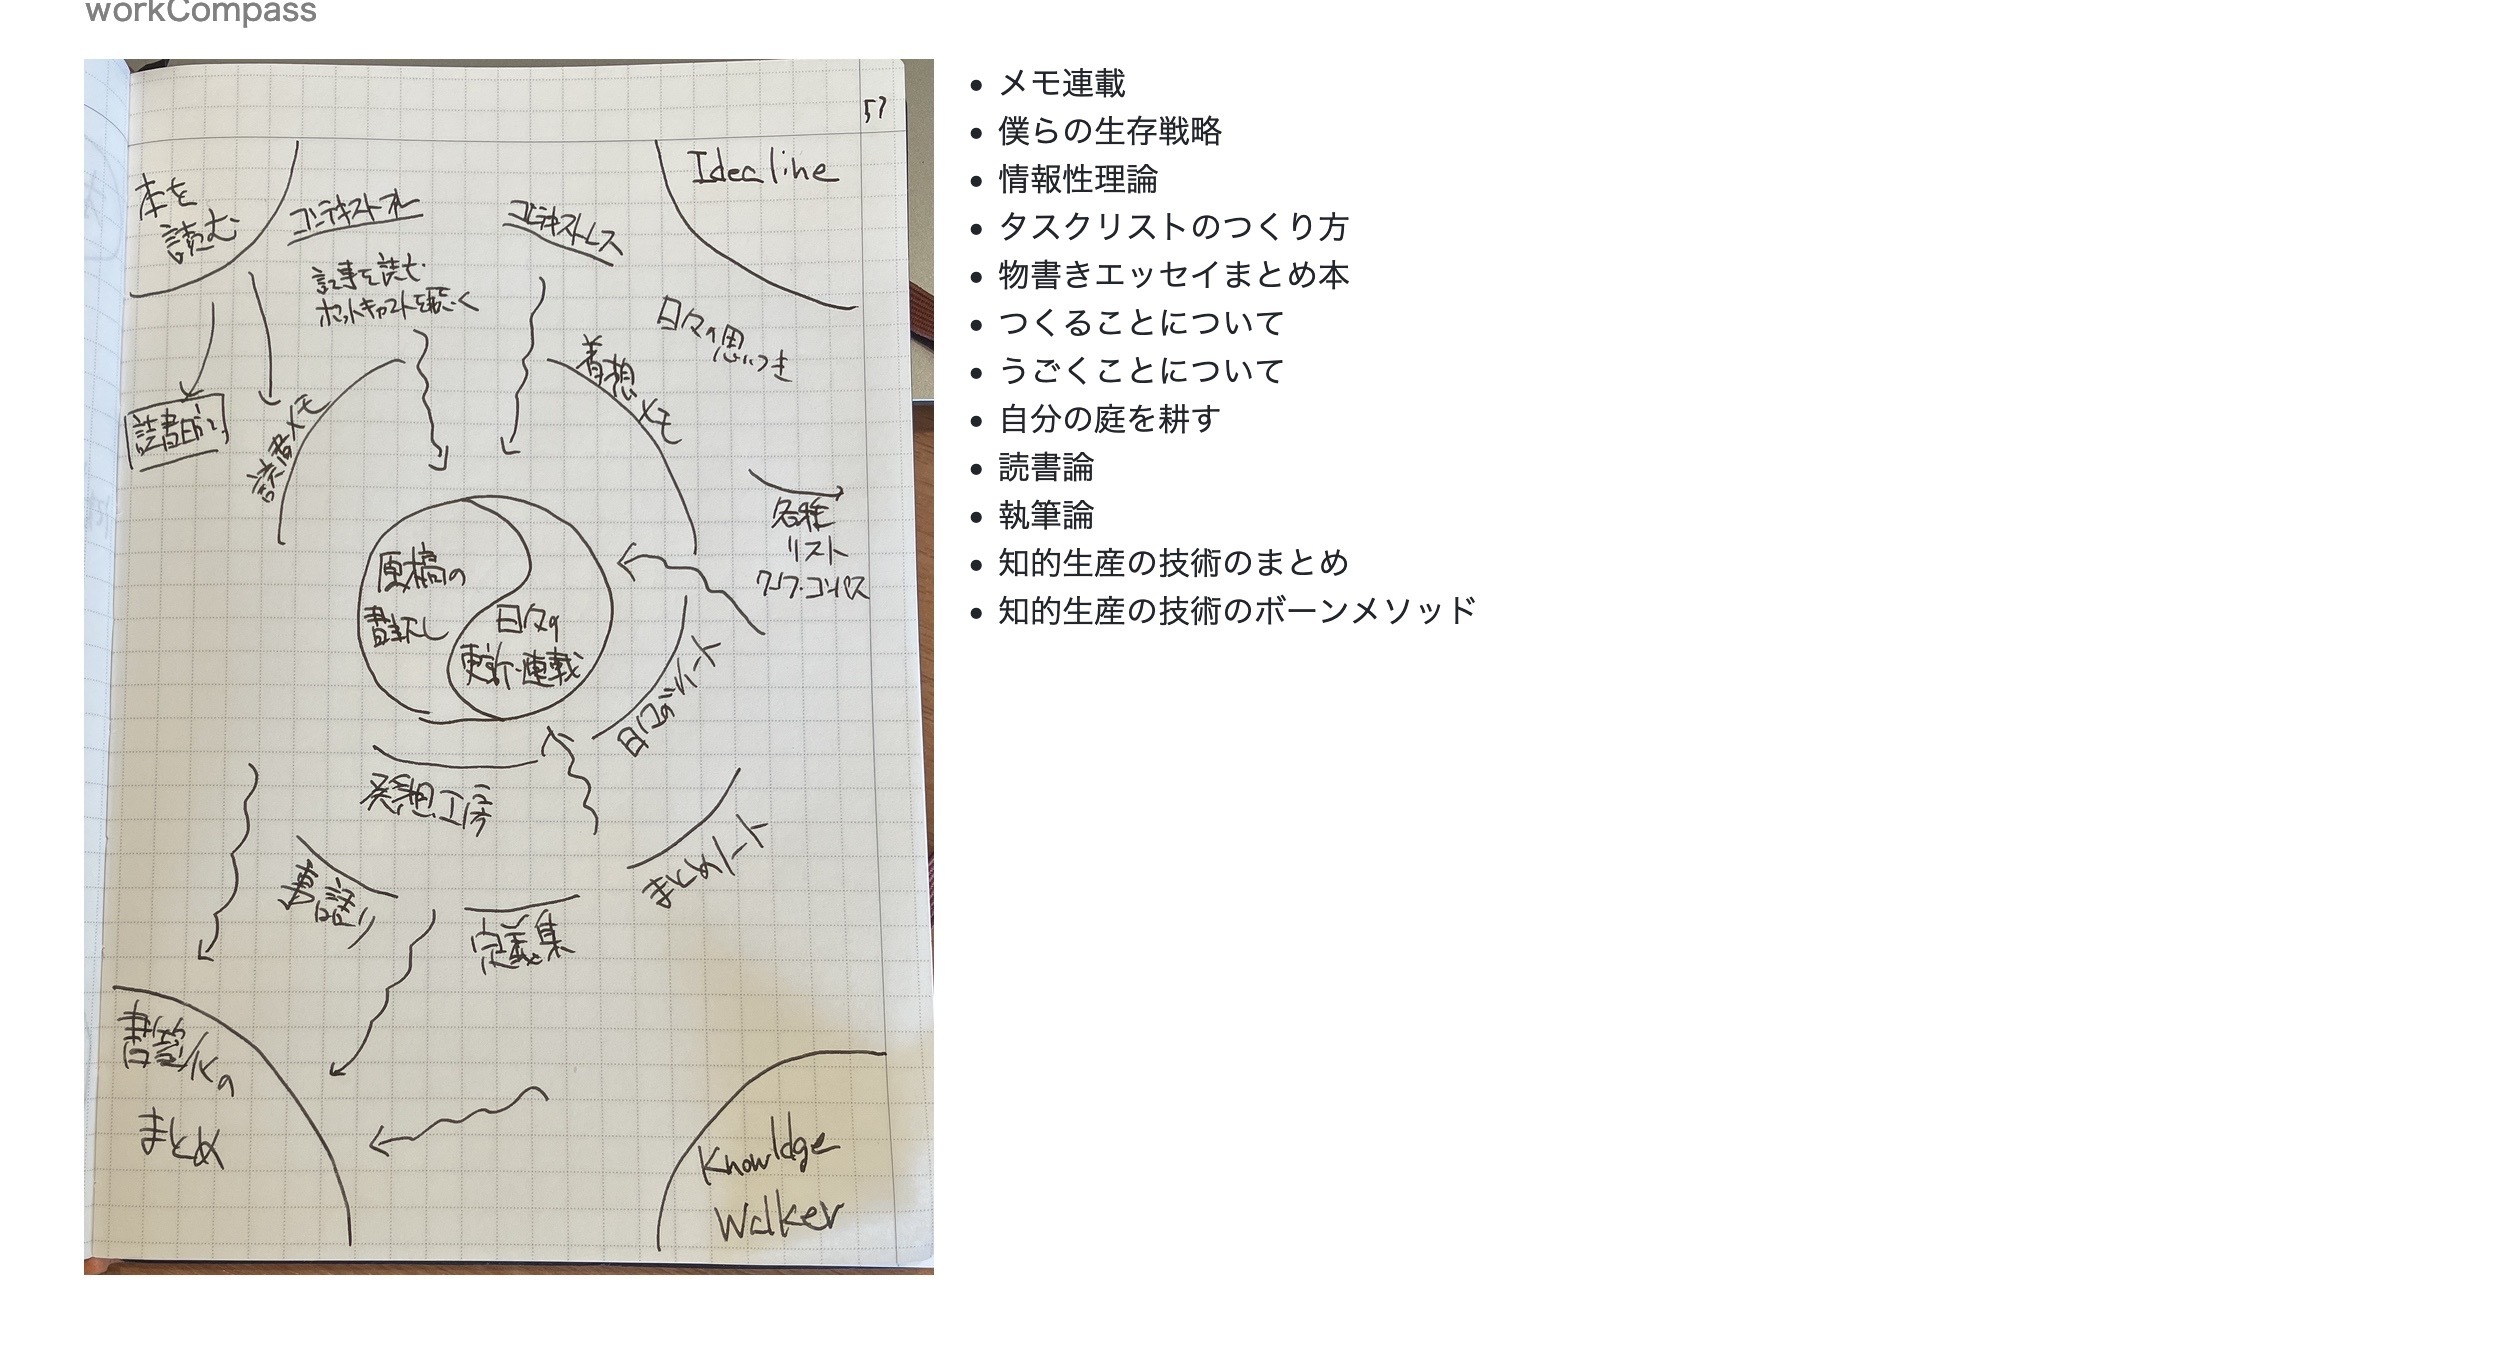 workCompass
57
本を
読む
コンテキストフル
コンテキストレス
Idea line
記事を読む
ポッドキャストを聴く
日々の思いつき
着想メモ
読書メモ
読書日記
各種
リスト
ワーク・コンパス
原稿の
書き下し
日々の
更新・連載
日々のノート
発想工房
まとめノート
事語り
定義集
書籍化の
まとめ
Knowldge
Walker
メモ連載
僕らの生存戦略
情報性理論
タスクリストのつくり方
物書きエッセイまとめ本
つくることについて
うごくことについて
自分の庭を耕す
読書論
執筆論
知的生産の技術のまとめ
知的生産の技術のボーンメソッド